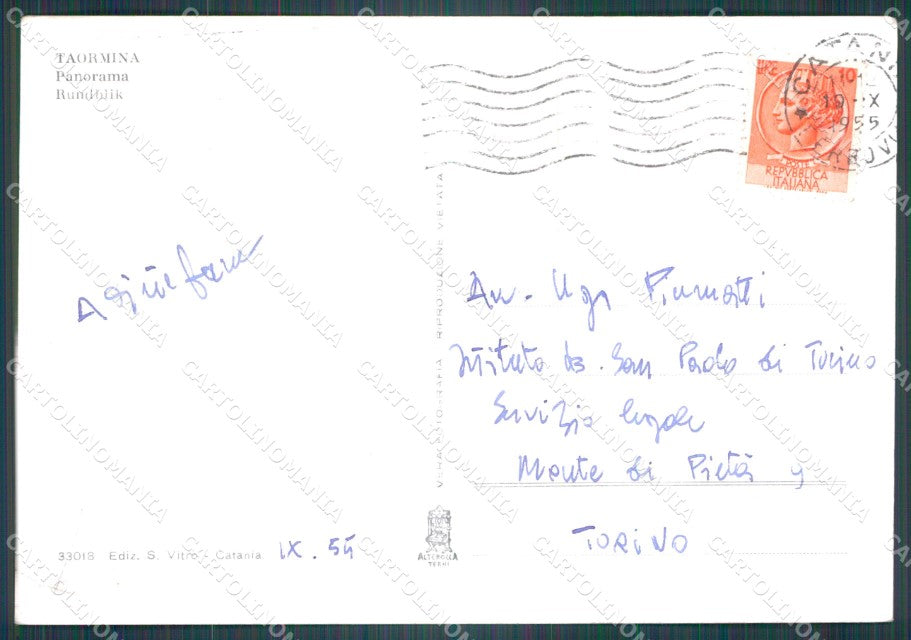 TAORMINA
Panorama
Rundblik
CATANIA
19 · IX
1955
FERROVIA
10
REPVBBLICA
ITALIANA
RIPRODUZIONE VIETATA
Avv. Ugo Piumatti
Istituto B. San Paolo di Torino
Servizio legale
Monte di Pietà 9
TORINO
33018 Ediz. S. Vitro - Catania
IX. 55
ALTEROCCA
TERNI
CARTOLINOMANIA